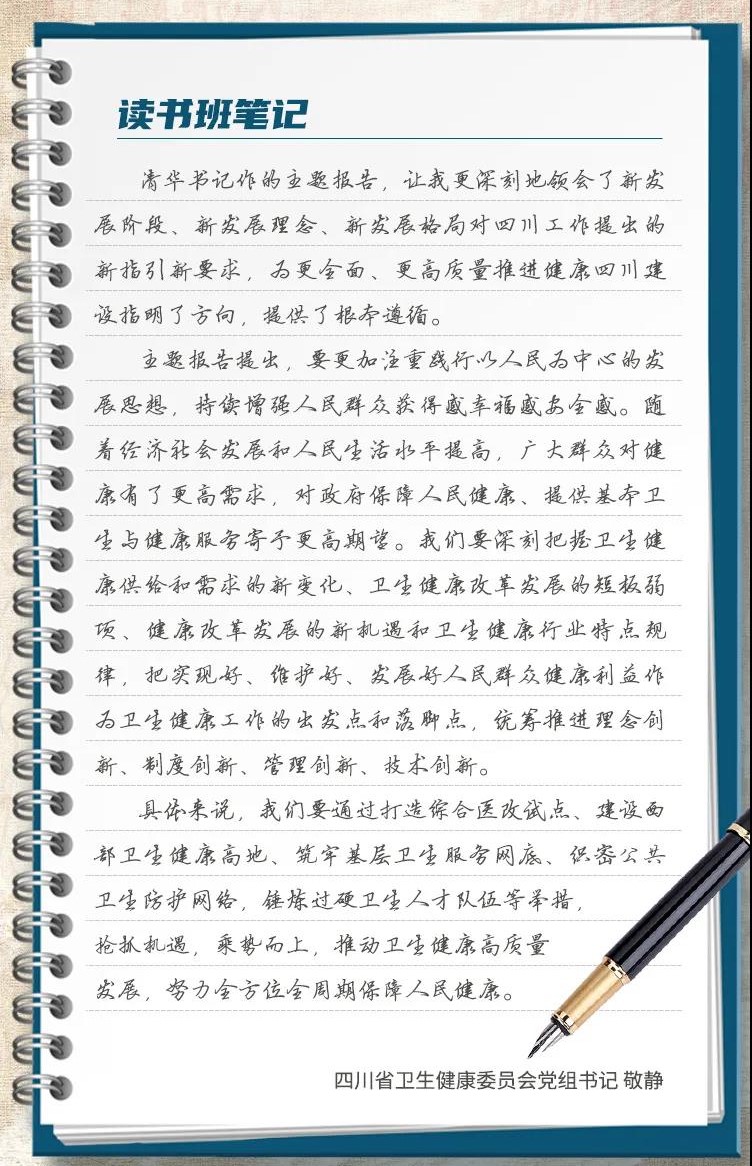 读书班笔记
清华书记作的主题报告，让我更深刻地领会了新发
展阶段、新发展理念、新发展格局对四川工作提出的
新指引新要求，为更全面、更高质量推进健康四川建
设指明了方向，提供了根本遵循。
主题报告提出，要更加注重践行以人民为中心的发
展思想，持续增强人民群众获得感幸福感安全感。随
着经济社会发展和人民生活水平提高，广大群众对健
康有了更高需求，对政府保障人民健康、提供基本卫
生与健康服务寄予更高期望。我们要深刻把握卫生健
康供给和需求的新变化、卫生健康改革发展的短板弱
项、健康改革发展的新机遇和卫生健康行业特点规
律，把实现好、维护好、发展好人民群众健康利益作
为卫生健康工作的出发点和落脚点，统筹推进理念创
新、制度创新、管理创新、技术创新。
具体来说，我们要通过打造综合医改试点、建设西
部卫生健康高地、筑牢基层卫生服务网底、织密公共
卫生防护网络，锤炼过硬卫生人才队伍等举措，
抢抓机遇，乘势而上，推动卫生健康高质量
发展，努力全方位全周期保障人民健康。
四川省卫生健康委员会党组书记 敬静